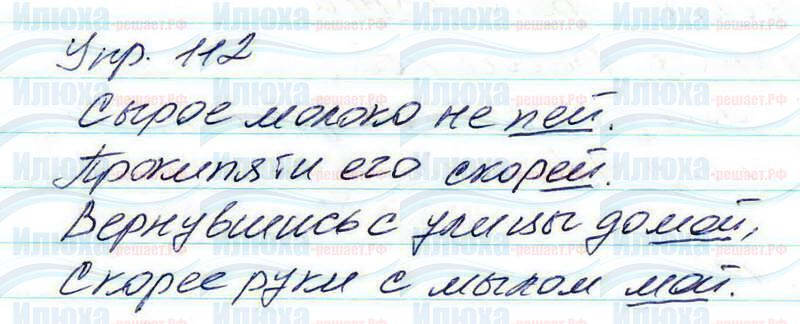 Упр. 112
Сырое молоко не пей.
Прокипяти его скорей.
Вернувшись с улицы домой,
Скорее руки с мылом мой.